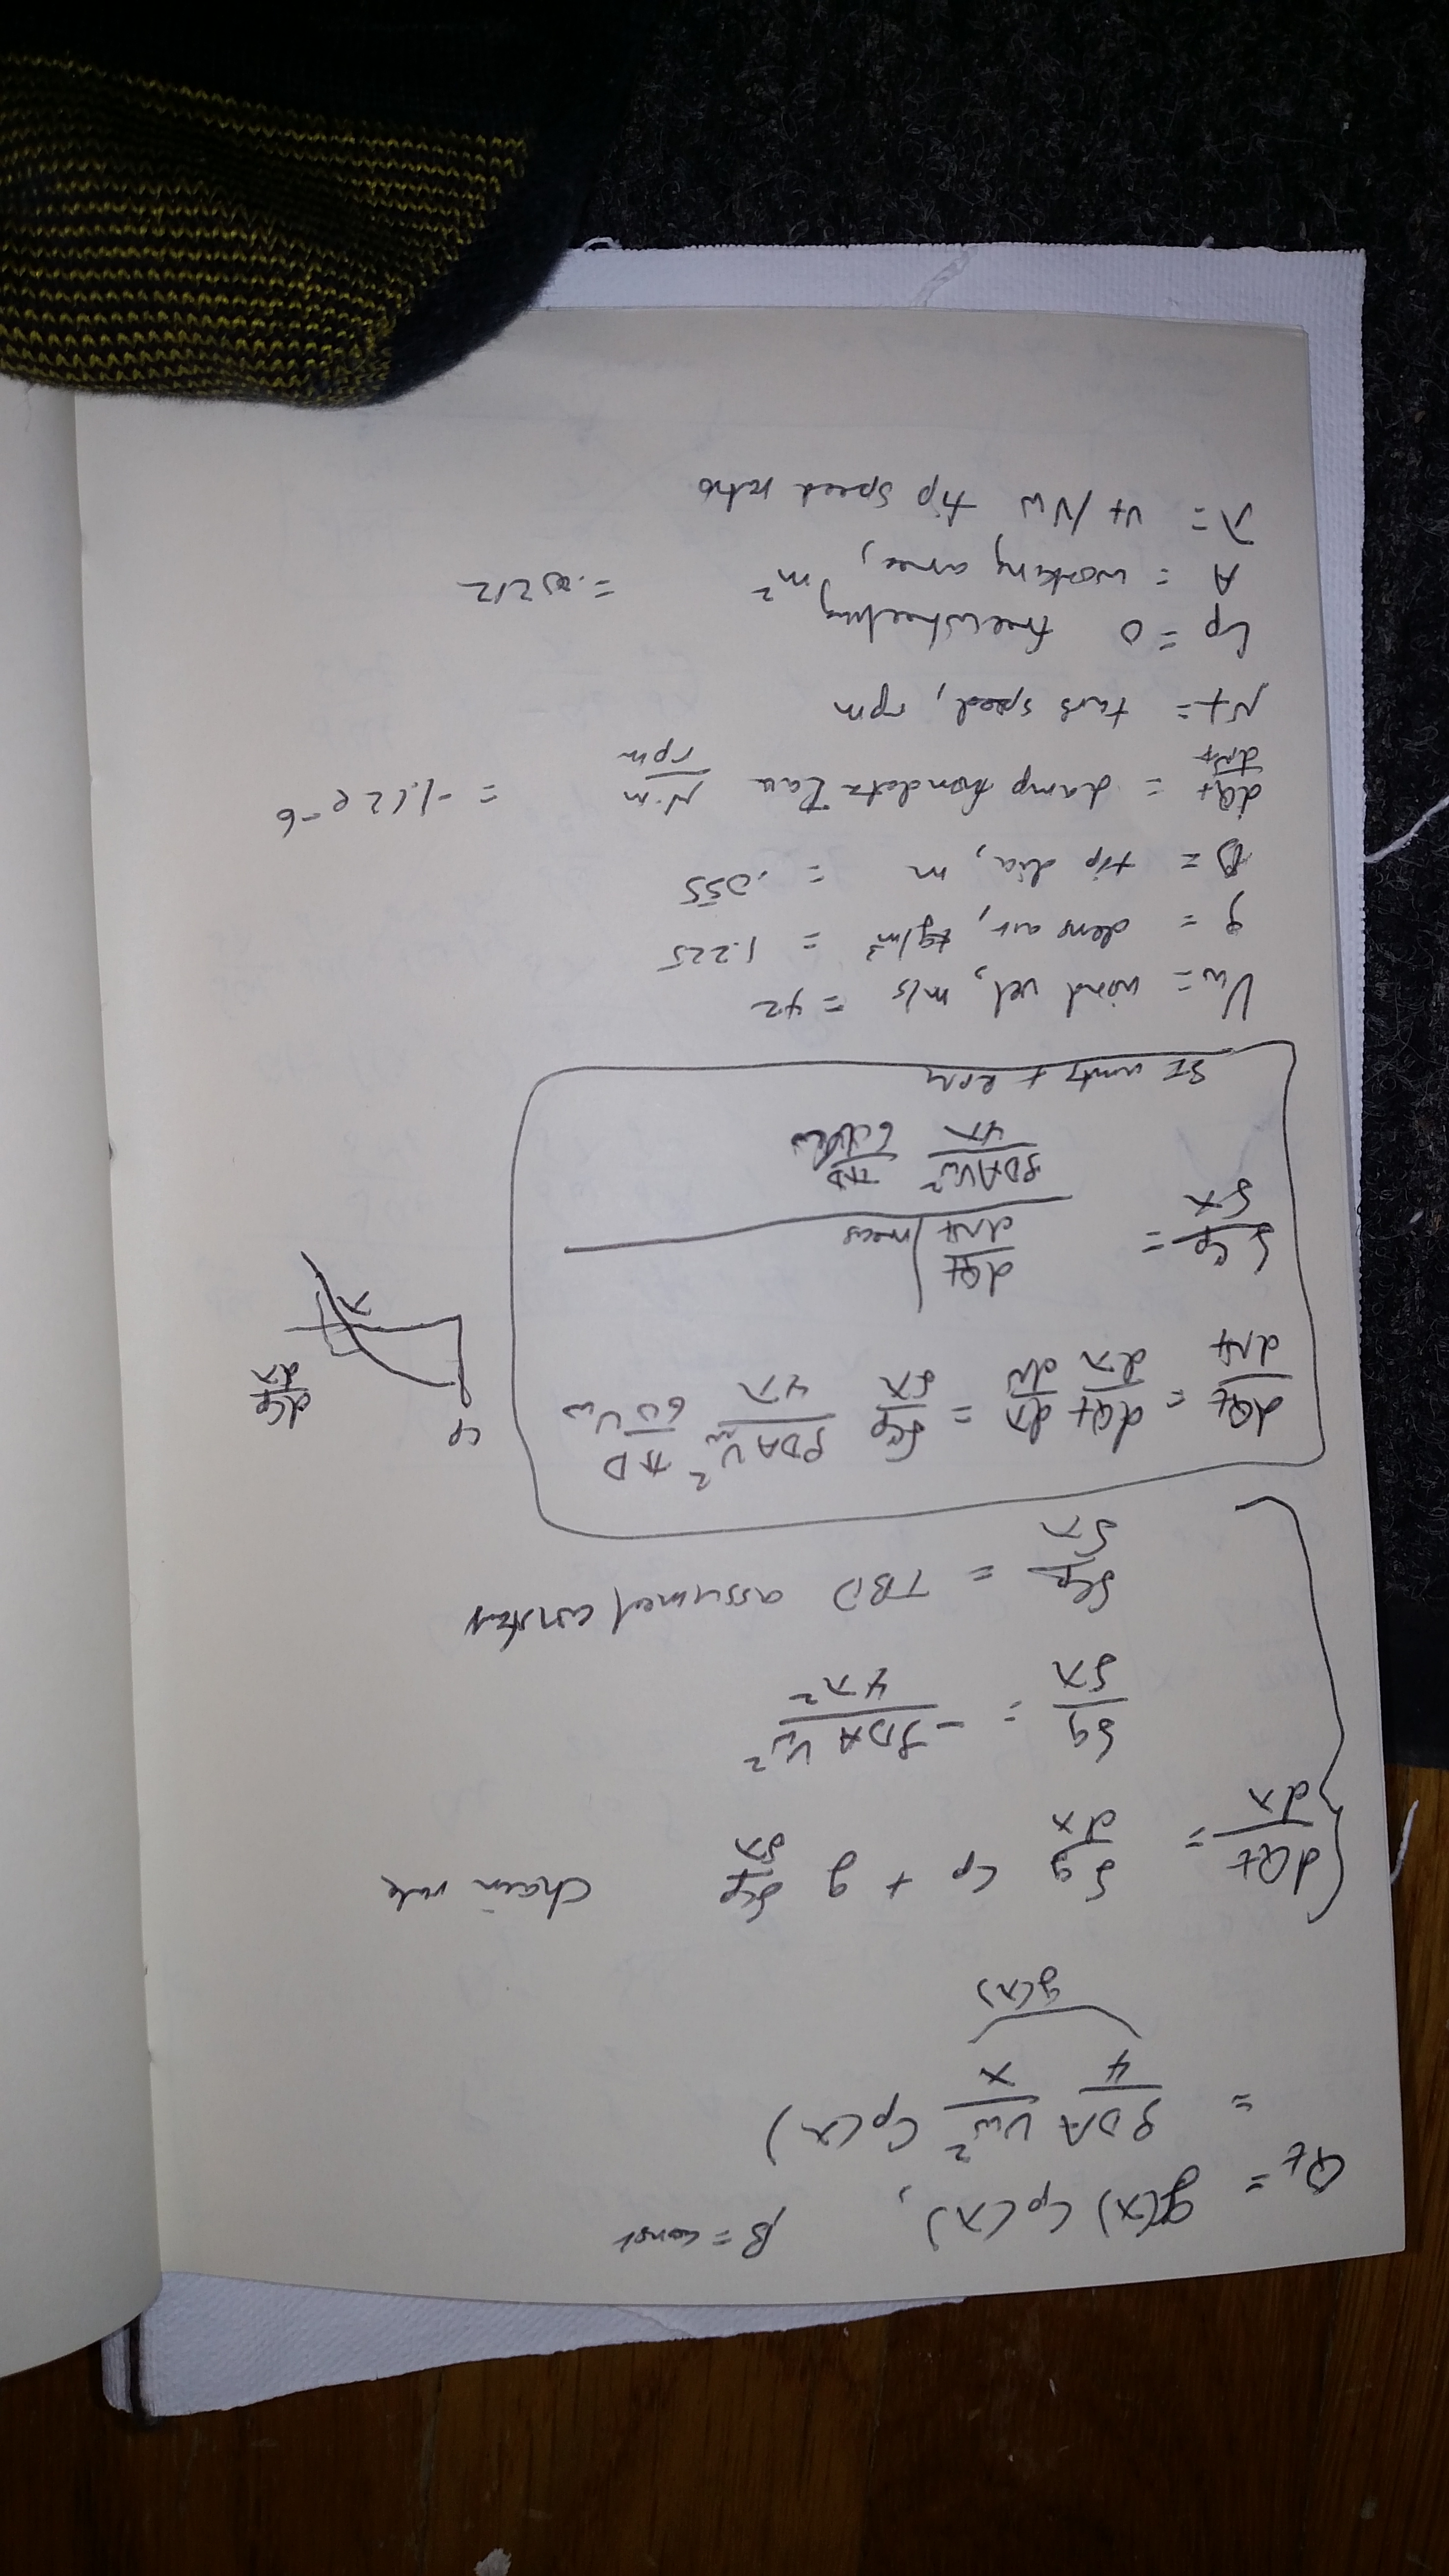 Qt = g(λ) Cp(λ), β = const
= ρDA/4 Vw²/λ Cp(λ)
g(λ)
dQt/dλ = δg/dλ Cp + g δCp/δλ chain rule
δg/δλ = -ρDA Vw²/4λ²
δCp/δλ = TBD assumed constant
dQt/dNt = dQt/dλ dλ/dN = δCp/δλ ρDAVw²/4λ πD/60Vw
Cp
λ
dCp/dλ
δCp/δλ = dQt/dNt|meas / ρDAVw²/4λ πD/60Vw
SI units + RPM
Vw = wind vel, m/s = 42
ρ = dens air, kg/m³ = 1.225
D = tip dia, m = .055
dQt/dNt = damp from data Tau N·m/rpm = -1.12e-6
Nt = turb speed, rpm
Cp = 0 freewheeling
A = working area, m² = .00212
λ = vt/Vw tip speed ratio